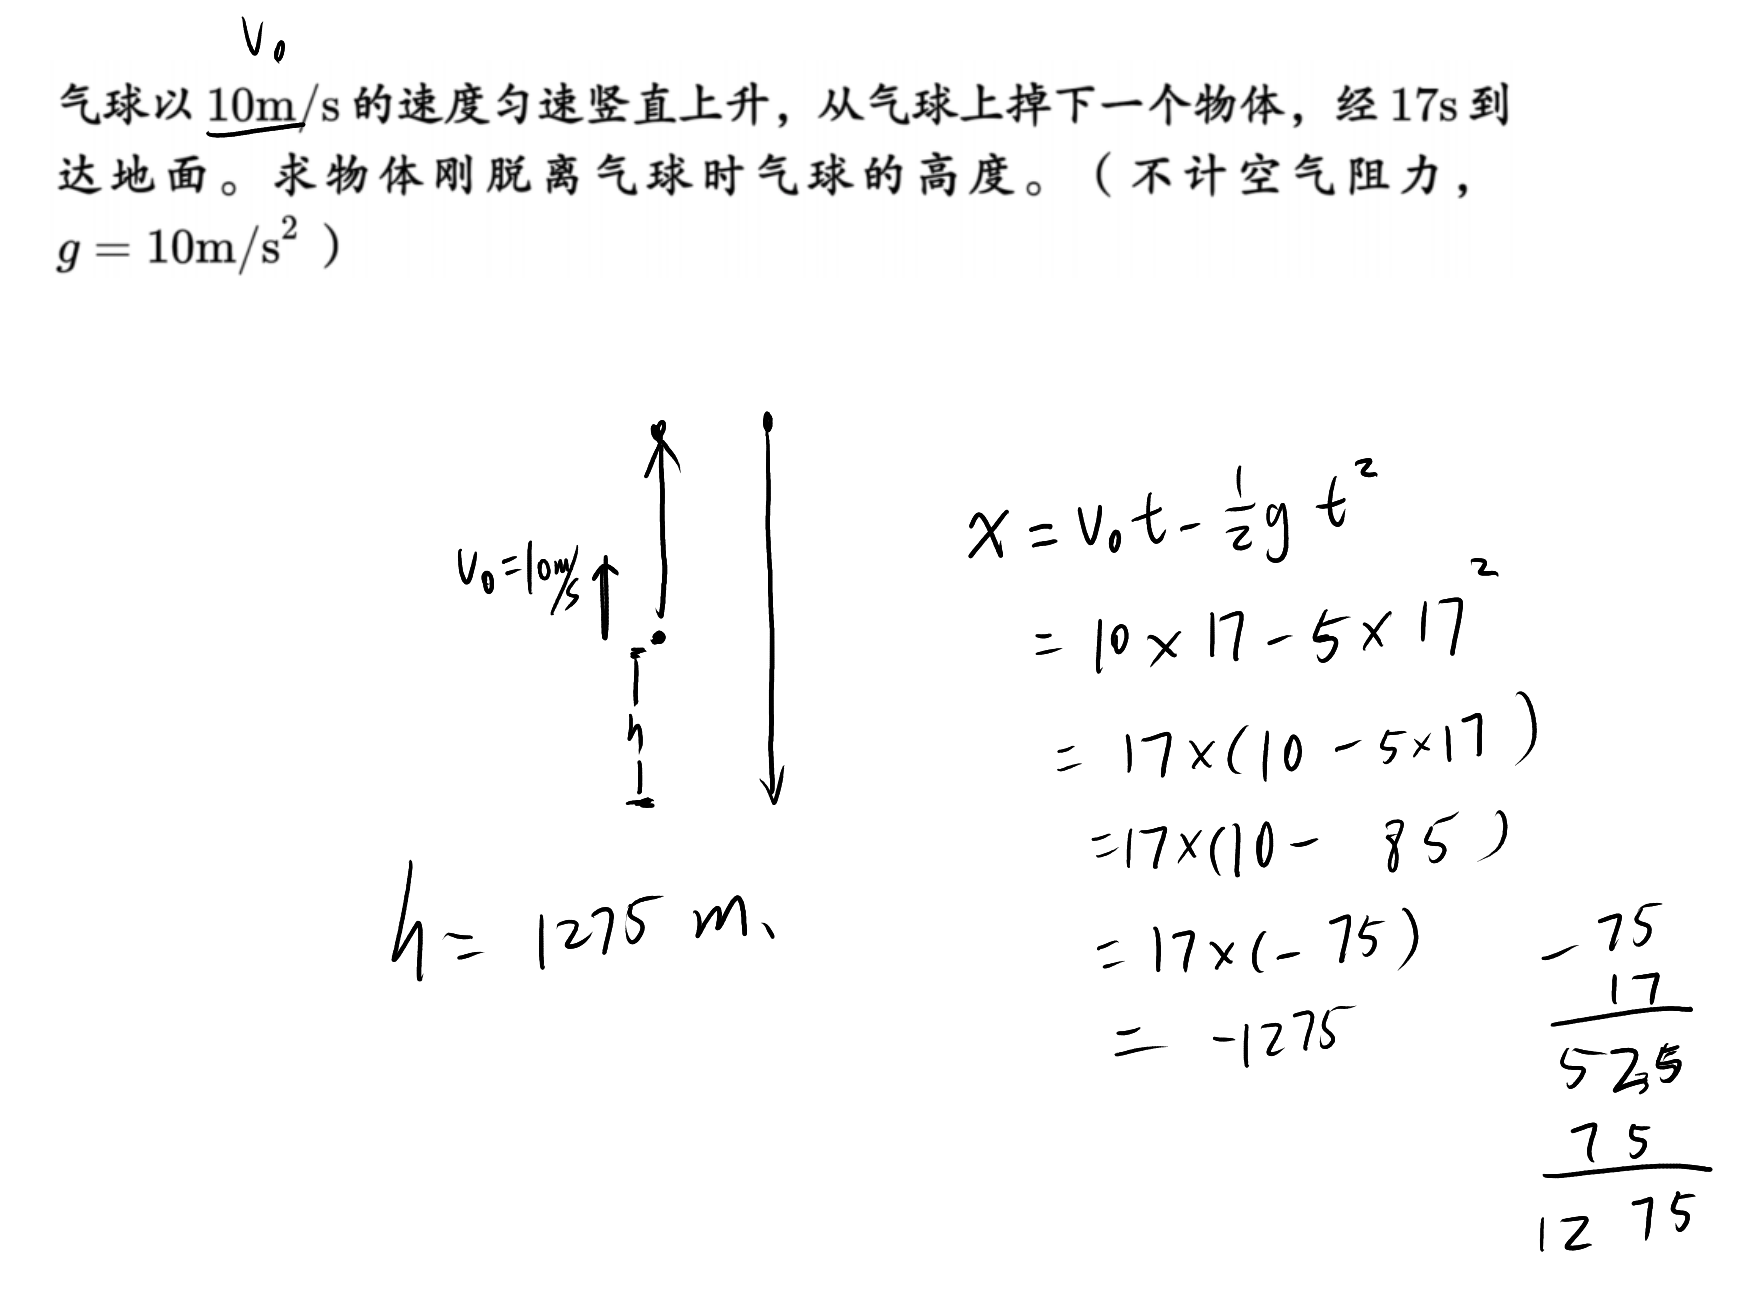 V₀
气球以 10m/s 的速度匀速竖直上升，从气球上掉下一个物体，经 17s 到
达地面。求物体刚脱离气球时气球的高度。（不计空气阻力，
g = 10m/s²）
V₀=10m/s
h
h = 1275 m.
x = V₀t - ½gt²
= 10 × 17 - 5 × 17²
= 17×(10 - 5×17)
=17×(10 - 85)
= 17×(- 75)
= -1275
- 75
17
525
75
1275